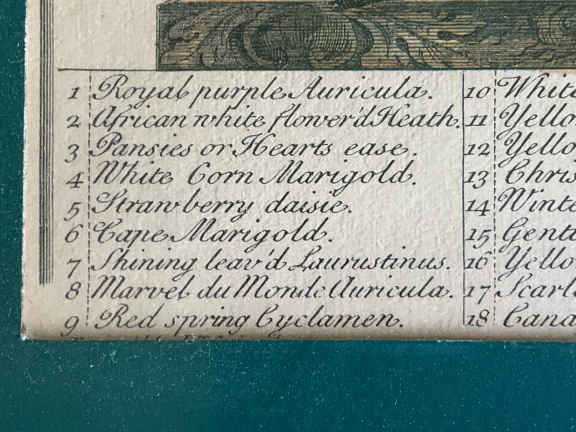 1 Royal purple Auricula.
2 African white flower'd Heath.
3 Pansies or Hearts ease.
4 White Corn Marigold.
5 Strawberry daisie.
6 Cape Marigold.
7 Shining leav'd Laurustinus.
8 Marvel du Monde Auricula.
9 Red spring Cyclamen.
10 White
11 Yello
12 Yello
13 Chris
14 Winte
15 Genti
16 Yello
17 Scarl
18 Cana